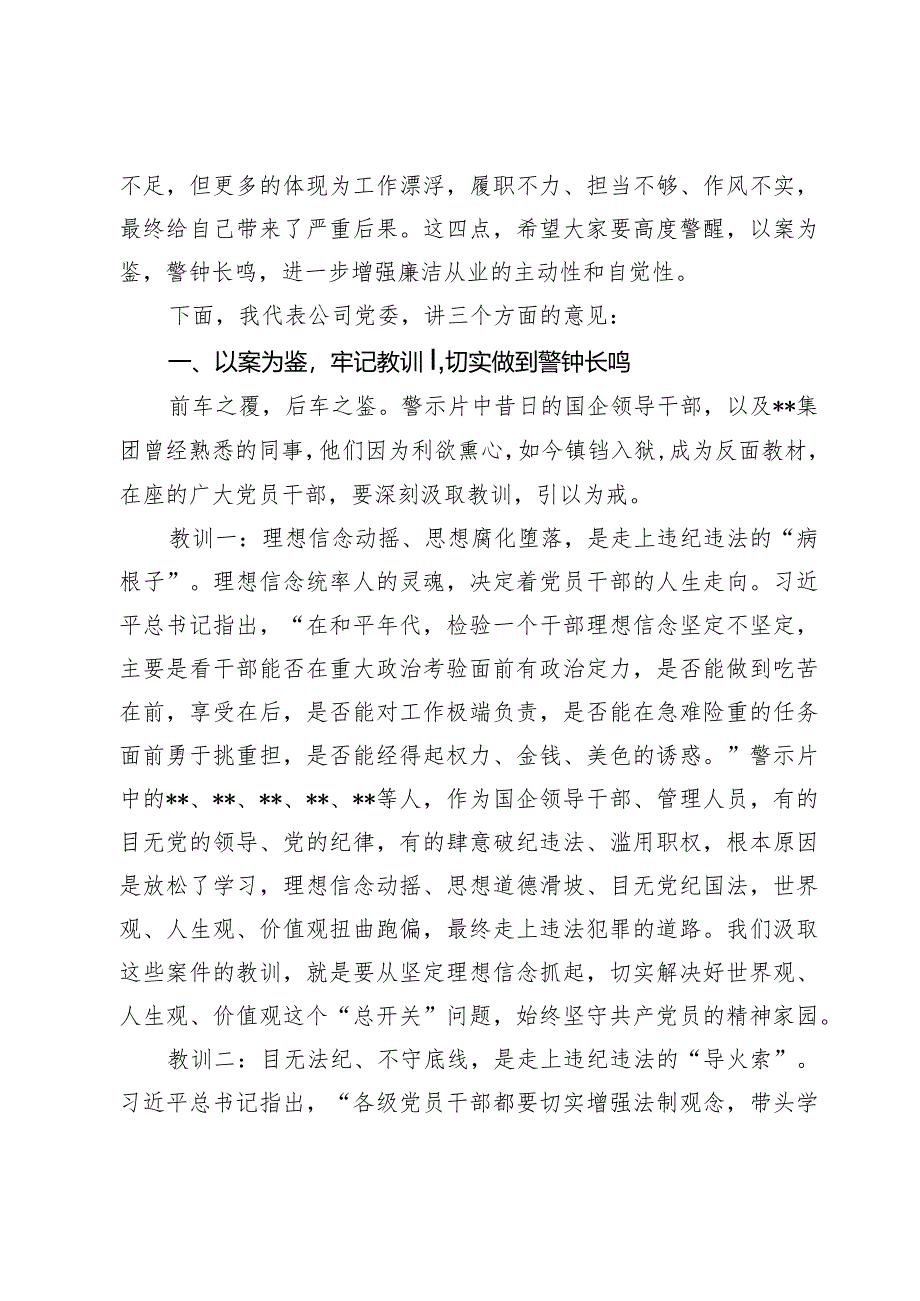 不足，但更多的体现为工作漂浮，履职不力、担当不够、作风不实，
最终给自己带来了严重后果。这四点，希望大家要高度警醒，以案为
鉴，警钟长鸣，进一步增强廉洁从业的主动性和自觉性。
下面，我代表公司党委，讲三个方面的意见：
一、以案为鉴，牢记教训l,切实做到警钟长鸣
前车之覆，后车之鉴。警示片中昔日的国企领导干部，以及**集
团曾经熟悉的同事,他们因为利欲熏心,如今镇铛入狱,成为反面教材，
在座的广大党员干部，要深刻汲取教训，引以为戒。
教训一：理想信念动摇、思想腐化堕落，是走上违纪违法的“病
根子”。理想信念统率人的灵魂，决定着党员干部的人生走向。习近
平总书记指出，“在和平年代，检验一个干部理想信念坚定不坚定，
主要是看干部能否在重大政治考验面前有政治定力，是否能做到吃苦
在前，享受在后，是否能对工作极端负责，是否能在急难险重的任务
面前勇于挑重担，是否能经得起权力、金钱、美色的诱惑。”警示片
中的**、**、**、**、**等人，作为国企领导干部、管理人员，有的
目无党的领导、党的纪律，有的肆意破纪违法、滥用职权，根本原因
是放松了学习，理想信念动摇、思想道德滑坡、目无党纪国法，世界
观、人生观、价值观扭曲跑偏，最终走上违法犯罪的道路。我们汲取
这些案件的教训，就是要从坚定理想信念抓起，切实解决好世界观、
人生观、价值观这个“总开关”问题，始终坚守共产党员的精神家园。
教训二：目无法纪、不守底线，是走上违纪违法的“导火索”。
习近平总书记指出，“各级党员干部都要切实增强法制观念，带头学